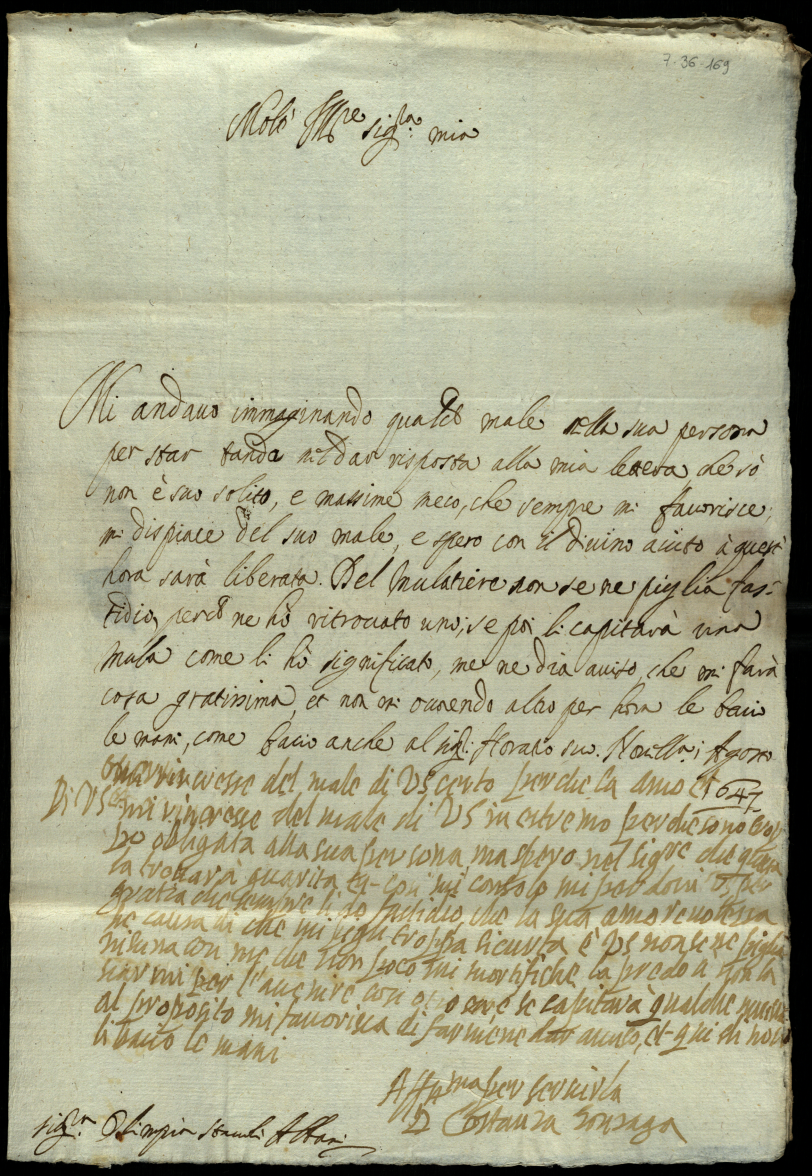 7-36-169
Molt' Ill.re sig.ra mia
Mi andavo immaginando qualche male nella sua persona
per star tanda nel dar risposta alla mia lettera che sò
non è suo solito, e massime meco, che sempre mi favorisce;
mi dispiace del suo male, e spero con il divino aiuto à quest'
hora sarà liberata. Del Mulatiere non se ne piglia fas-
tidio, perche ne hò ritrovato uno; se poi li capitarà una
Mula come li hò significato, me ne dia aviso, che mi farà
cosa gratissima, et non mi occorendo altro per hora le bacio
le mani, come bacio anche al sig.r Horatio suo. Novellara i Agosto
1647
Di VS mi rincresse del male di VS in estremo perche sono trop
po obligata alla sua persona ma spero nel sig.re che questa
la trovarà guarita et così mi consolo mi perdoni VS per
gratia che sempre li do fastidio, che la sua amorevolezza
ne causa di che mi pigli troppa sicurtà è VS non se ne piglia
nisuna con me che non poco mi mortifiche la predo à
per l'avenire con se capitarà qualche
al proposito mi favorisca di farmene dar aviso, et qui di novo
li bacio le mani
Aff.ma per servirla
D Costanza Gonzaga
sig.ra Olimpia Albani